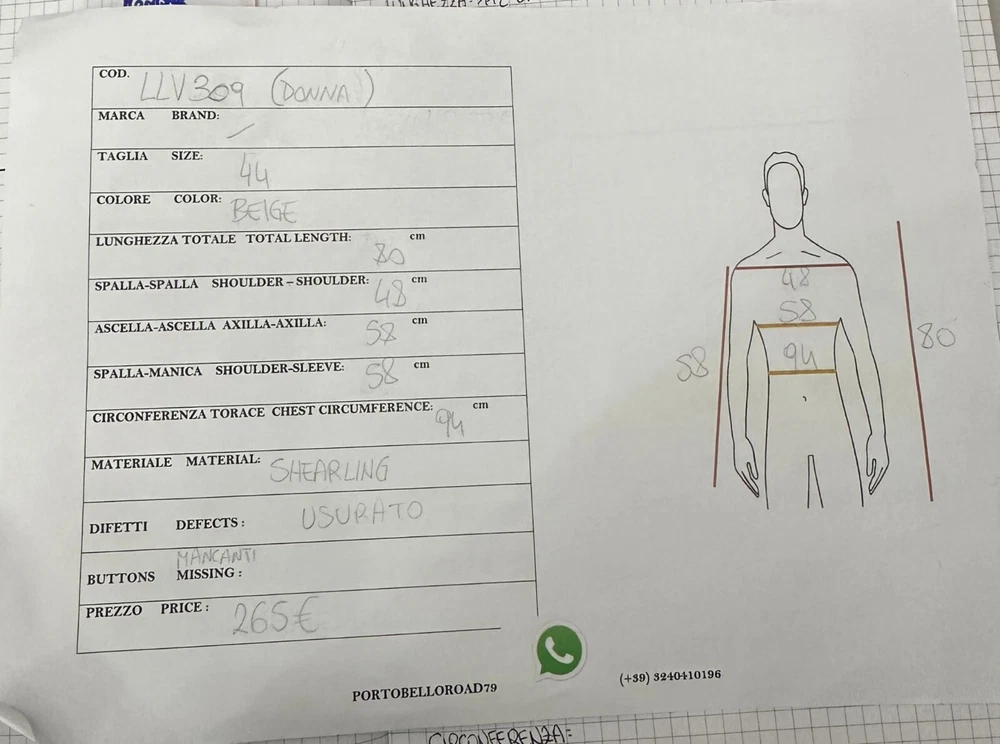 COD. LLV309 (DONNA)
MARCA BRAND: /
TAGLIA SIZE: 44
COLORE COLOR: BEIGE
LUNGHEZZA TOTALE TOTAL LENGTH: 80 cm
SPALLA-SPALLA SHOULDER – SHOULDER: 48 cm
ASCELLA-ASCELLA AXILLA-AXILLA: 58 cm
SPALLA-MANICA SHOULDER-SLEEVE: 58 cm
CIRCONFERENZA TORACE CHEST CIRCUMFERENCE: 94 cm
MATERIALE MATERIAL: SHEARLING
DIFETTI DEFECTS: USURATO
MANCANTI
BUTTONS MISSING:
PREZZO PRICE: 265€
48
58
94
58
80
PORTOBELLOROAD79
(+39) 3240410196
CIRCONFERENZA: